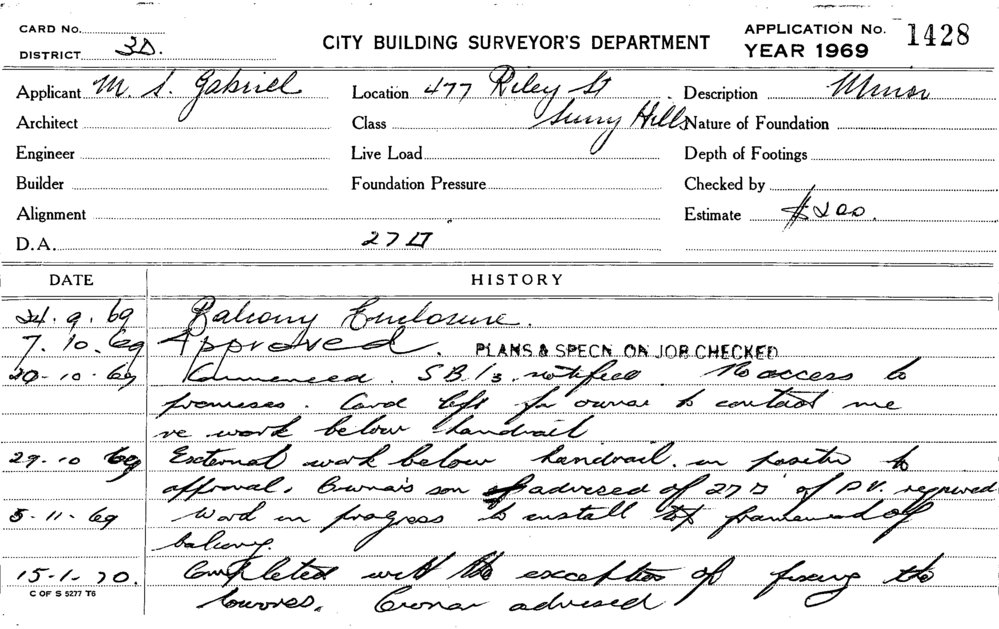 CARD No.
DISTRICT 3D.
CITY BUILDING SURVEYOR'S DEPARTMENT
APPLICATION No. 1428
YEAR 1969
Applicant M. S. Gabriel Location 477 Riley St Description Minor
Architect Class Surry Hills Nature of Foundation
Engineer Live Load Depth of Footings
Builder Foundation Pressure Checked by
Alignment Estimate $200.
D.A. 27
DATE HISTORY
24.9.69 Balcony Enclosure.
7.10.69 Approved. PLANS & SPECN. ON JOB CHECKED
20-10-69 Commenced. SB. notified. No access to
premises. Card left for owner to contact me
re work below handrail
29-10 69 External work below handrail. in to
approval. Owner's son advised of 27 of required
5-11-69 Work in progress to install framework of
balcony.
15-1-70. Completed with the exception of fixing the
louvres. Owner advised
C OF S 5277 T6